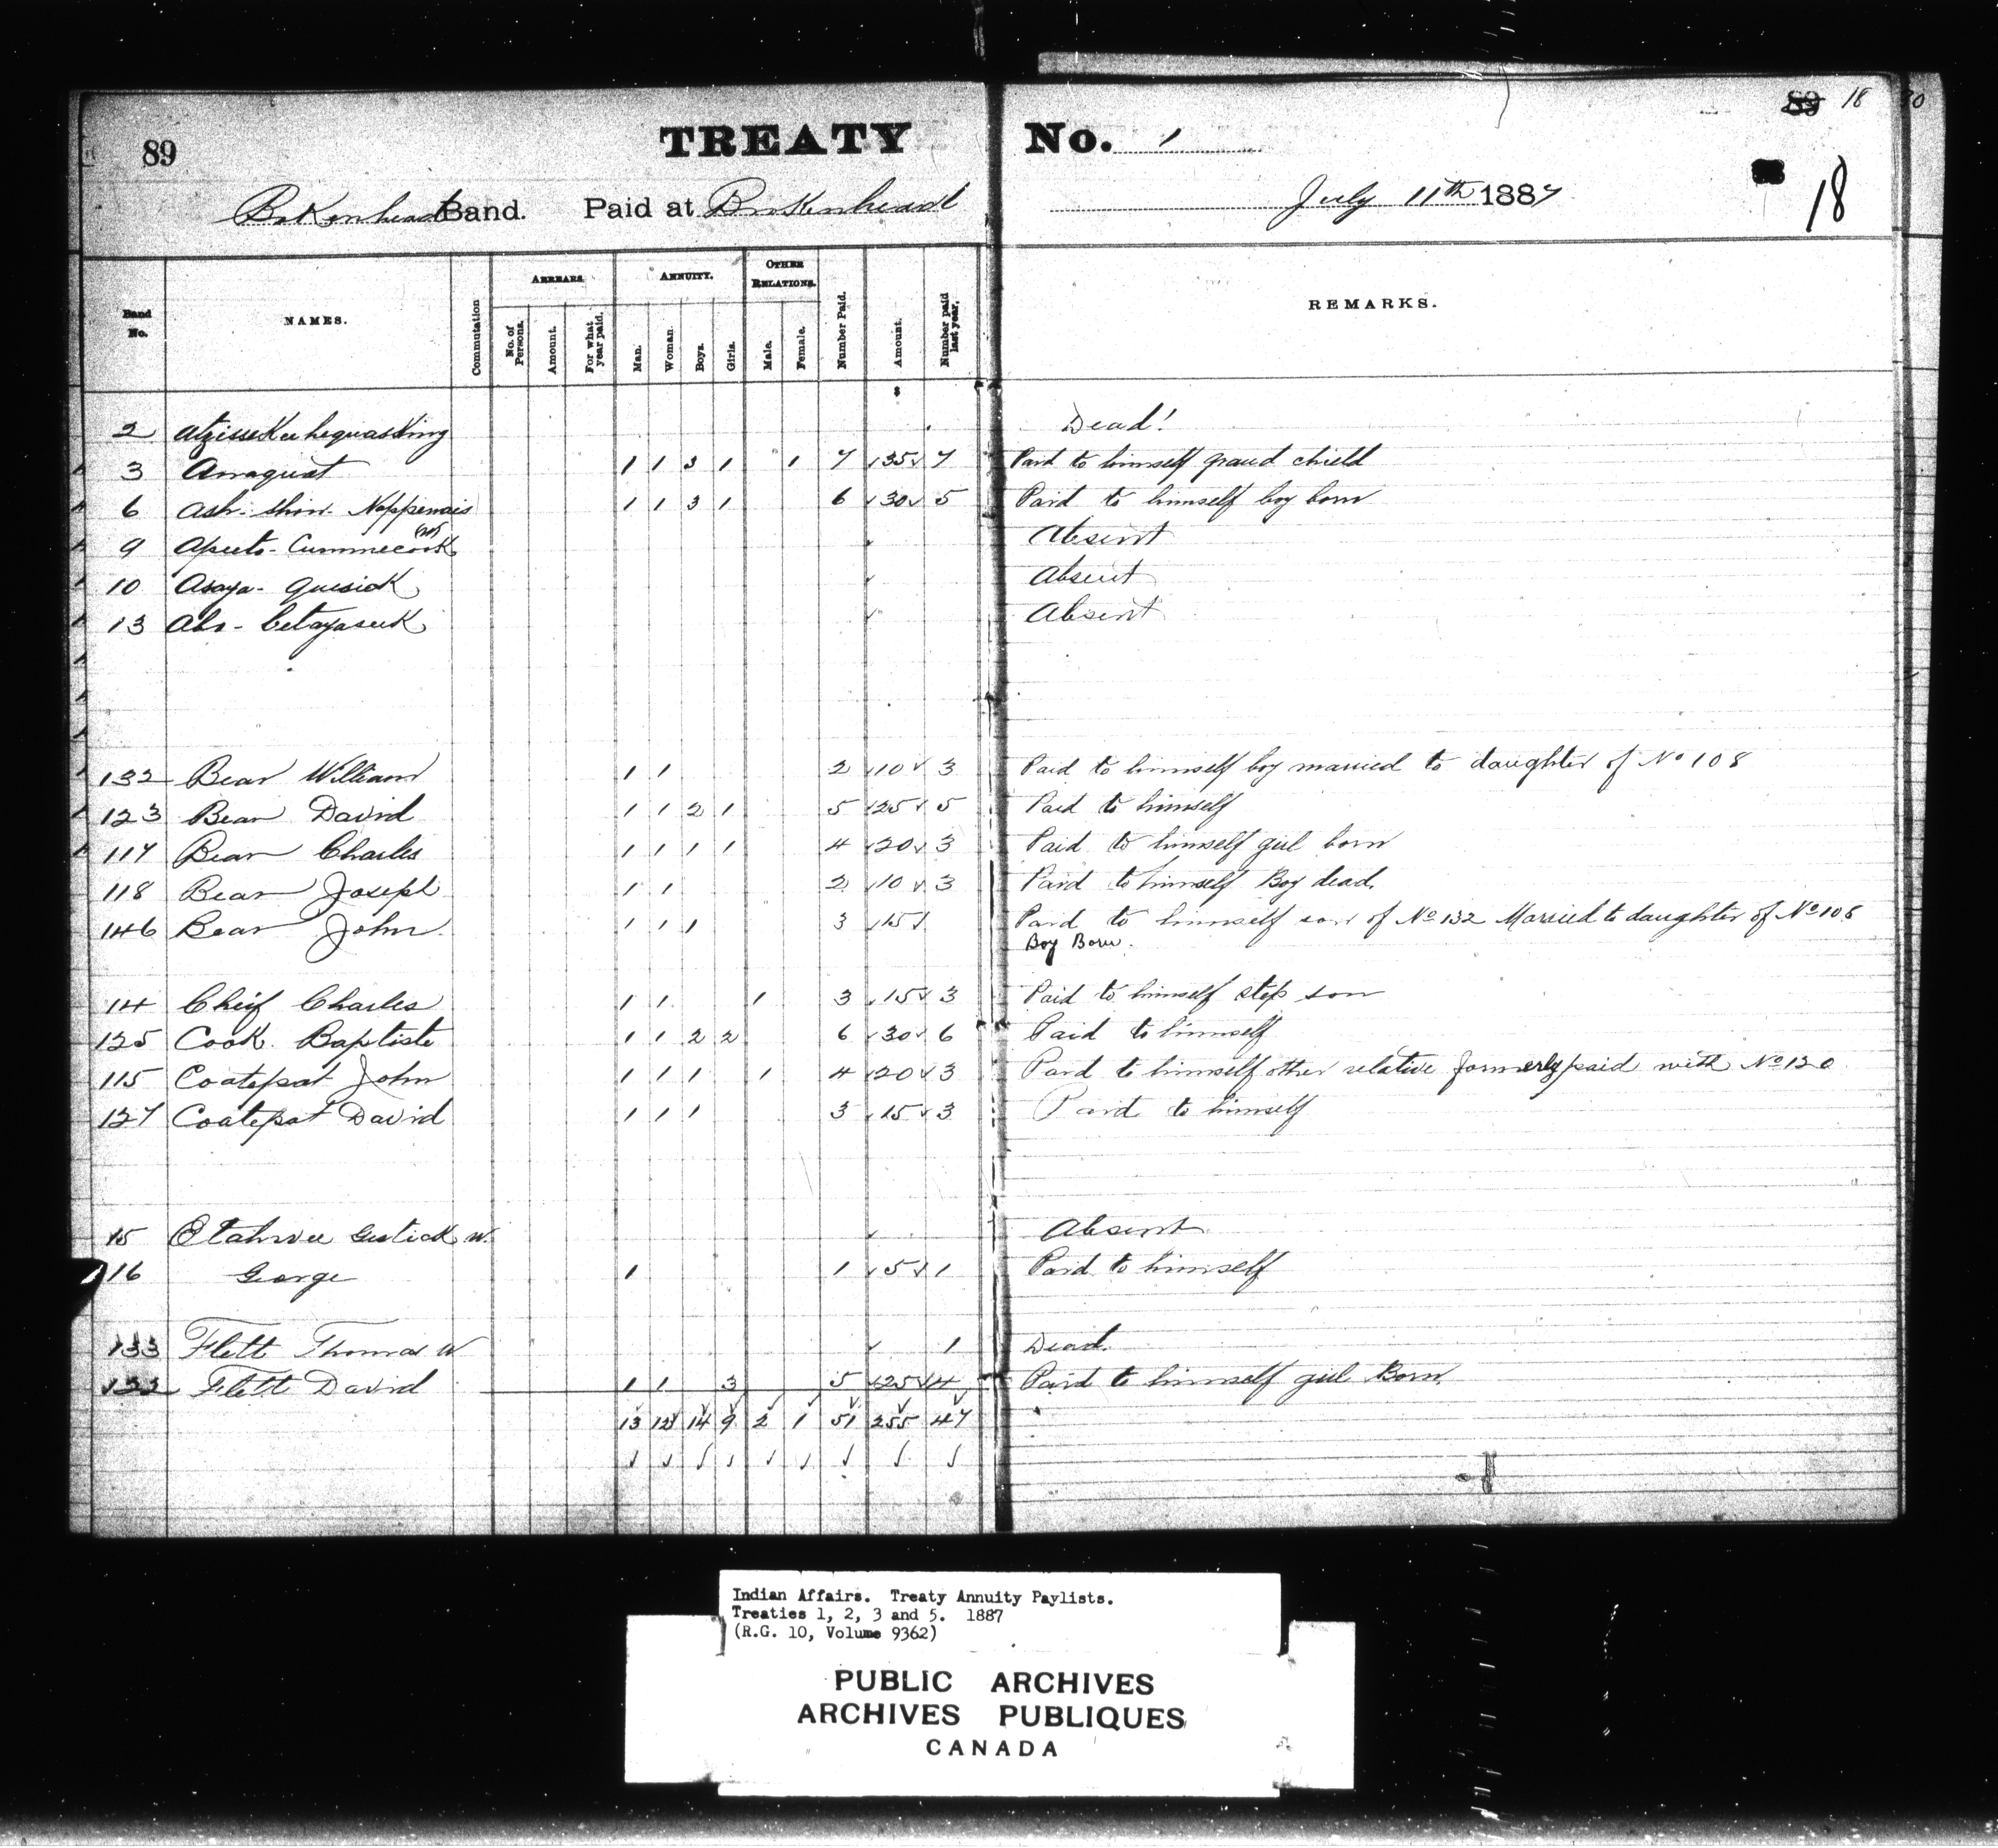 89 18 30
89 TREATY No. 1
18
Brokenhead Band. Paid at Brokenhead July 11th 1887
Band No. NAMES. Commutation ARREARS. No. of Persons. Amount. For what year paid. ANNUITY. Man. Woman. Boys. Girls. OTHER RELATIONS. Male. Female. Number Paid. Amount. Number paid last year. REMARKS.
$
2 Dead!
3 Annaquot 1 1 3 1 1 7 35 7 Paid to himself grand chield
6 Ash-shin-Nappenais 1 1 3 1 6 30 5 Paid to himself boy born
9 Apeeto-Cummecook Absent
10 Asaya-quesick Absent
13 Abs-betayaseek Absent
132 Bear William 1 1 2 10 3 Paid to himself boy married to daughter of No 108
123 Bear David 1 1 2 1 5 25 5 Paid to himself
117 Bear Charles 1 1 1 1 4 20 3 Paid to himself girl born
118 Bear Joseph 1 1 2 10 3 Paid to himself Boy dead.
146 Bear John 1 1 1 3 15 Paid to himself son of No 132 Married to daughter of No 108
Boy Born.
14 Cheif Charles 1 1 1 3 15 3 Paid to himself step son
125 Cook Baptiste 1 1 2 2 6 30 6 Paid to himself
115 Coatepat John 1 1 1 1 4 20 3 Paid to himself other relative formerly paid with No 120
127 Coatepat David 1 1 1 3 15 3 Paid to himself
15 Etahwee Gustick W. Absent
16 George 1 1 5 1 Paid to himself
133 Flett Thomas W 1 Dead.
Flett David 1 1 3 5 25 4 Paid to himself girl Born.
13 12 14 9 2 1 51 255 47
Indian Affairs. Treaty Annuity Paylists.
Treaties 1, 2, 3 and 5. 1887
(R.G. 10, Volume 9362)
PUBLIC ARCHIVES
ARCHIVES PUBLIQUES
CANADA